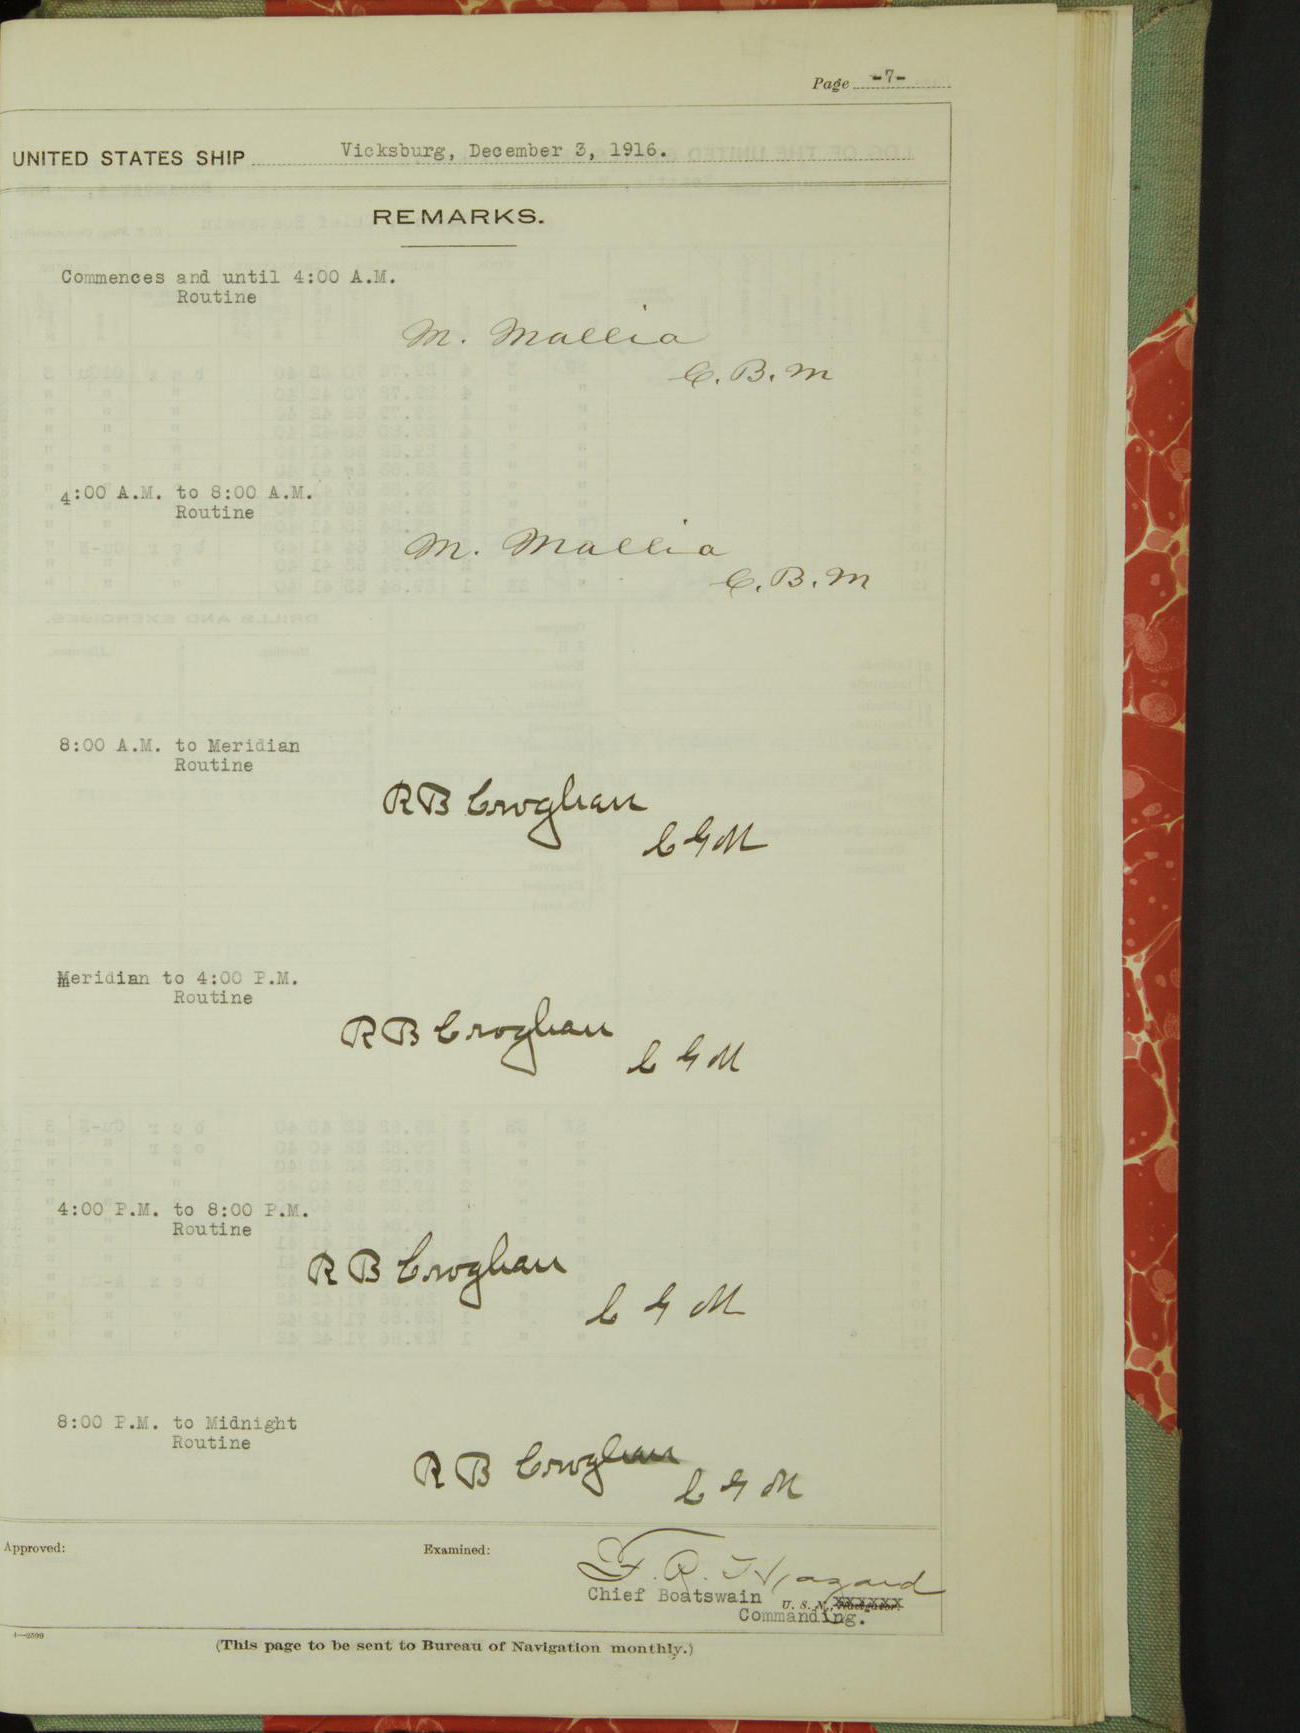 Page -7-
UNITED STATES SHIP Vicksburg, December 3, 1916.
REMARKS.
Commences and until 4:00 A.M.
Routine
M. Mallia
C. B. M
4:00 A.M. to 8:00 A.M.
Routine
M. Mallia
C. B. M
8:00 A.M. to Meridian
Routine
R B Croghan
C G M
Meridian to 4:00 P.M.
Routine
R B Croghan
C G M
4:00 P.M. to 8:00 P.M.
Routine
R B Croghan
C G M
8:00 P.M. to Midnight
Routine
R B Croghan
C G M
Approved:
Examined:
F. R. Hazard
Chief Boatswain U. S. N., Navigator.
Commanding.
(This page to be sent to Bureau of Navigation monthly.)